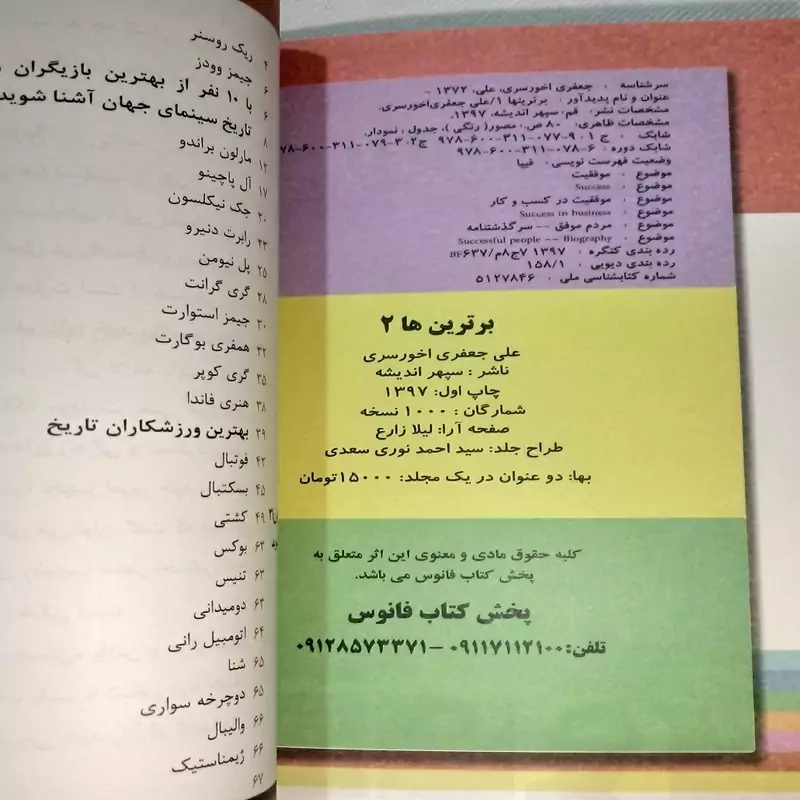 سرشناسه : جعفری اخورسری، علی، ۱۳۷۲ -
عنوان و نام پدیدآور : برترینها ۱/علی جعفری‌اخورسری.
مشخصات نشر: قم: سپهر اندیشه، ۱۳۹۷.
مشخصات ظاهری: ۸۰ ص.: مصور( رنگی )، جدول ، نمودار.
شابک : ج ۱ ۹-۰۷۷-۳۱۱-۶۰۰-۹۷۸ ج۲. ۳-۰۷۹-۳۱۱-۶۰۰-۹۷۸
شابک دوره : ۶-۰۷۸-۳۱۱-۶۰۰-۹۷۸
وضعیت فهرست نویسی : فیپا
موضوع : موفقیت
موضوع : Success
موضوع : موفقیت در کسب و کار
موضوع : Success in business
موضوع : مردم موفق -- سرگذشتنامه
موضوع : Successful people -- Biography
رده بندی کنگره : ۱۳۹۷ ۷ج۸م/BF۶۳۷
رده بندی دیویی : ۱۵۸/۱
شماره کتابشناسی ملی : ۵۱۲۷۸۴۶
برترین ها ۲
علی جعفری اخورسری
ناشر : سپهر اندیشه
چاپ اول: ۱۳۹۷
شمارگان : ۱۰۰۰ نسخه
صفحه آرا: لیلا زارع
طراح جلد: سید احمد نوری سعدی
بها: دو عنوان در یک مجلد: ۱۵۰۰۰تومان
کلیه حقوق مادی و معنوی این اثر متعلق به
پخش کتاب فانوس می باشد.
پخش کتاب فانوس
تلفن:۰۹۱۱۷۱۱۲۱۰۰ –۰۹۱۲۸۵۷۳۳۷۱
ریک روسنر ۴
جیمز وودز ۶
با ۱۰ نفر از بهترین بازیگران ۶
تاریخ سینمای جهان آشنا شوید ۸
مارلون براندو ۱۲
آل پاچینو ۱۷
جک نیکلسون ۲۰
رابرت دنیرو ۲۳
پل نیومن ۲۵
گری گرانت ۲۸
جیمز استوارت ۳۰
همفری بوگارت ۳۲
گری کوپر ۳۵
هنری فاندا ۳۸
بهترین ورزشکاران تاریخ ۳۹
فوتبال ۴۲
بسکتبال ۴۵
کشتی ۴۹
بوکس ۶۲
تنیس ۶۳
دومیدانی ۶۳
اتومبیل رانی ۶۴
شنا ۶۵
دوچرخه سواری ۶۵
والیبال ۶۶
ژیمناستیک ۶۶
۶۷